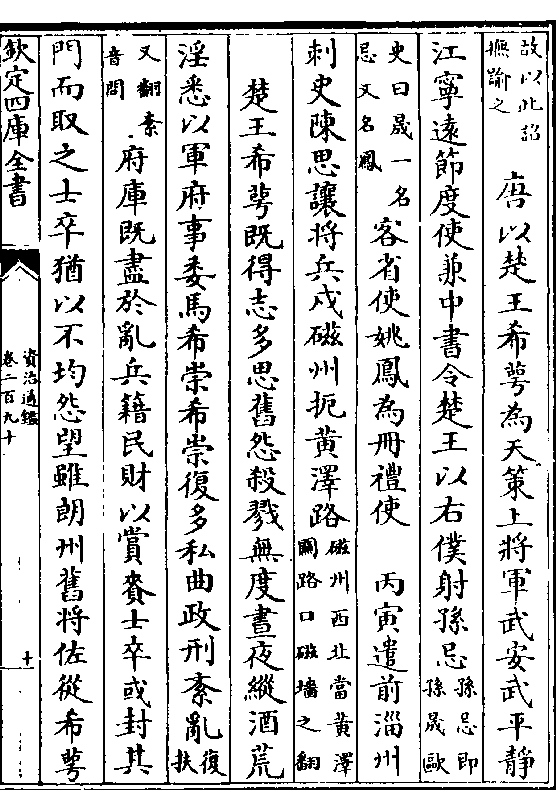 故以此詔撫諭之　唐以楚王希萼為天策上將軍武安武平靜
江寧遠節度使兼中書令楚王以右僕射孫忌孫忌即孫晟歐
史曰晟一名忌又名鳳客省使姚鳳為冊禮使　丙寅遣前淄州
刺史陳思讓將兵戍磁州扼黃澤路磁州西北當黃澤關路口磁墻之翻
楚王希萼既得志多思舊怨殺戮無度晝夜縱酒荒
淫悉以軍府事委馬希崇希崇復多私曲政刑紊亂復扶
又翻紊音問府庫既盡於亂兵籍民財以賞賚士卒或封其
門而取之士卒猶以不均怨望雖朗州舊將佐從希萼
欽定四庫全書
資治通鑑
卷二百九十
十